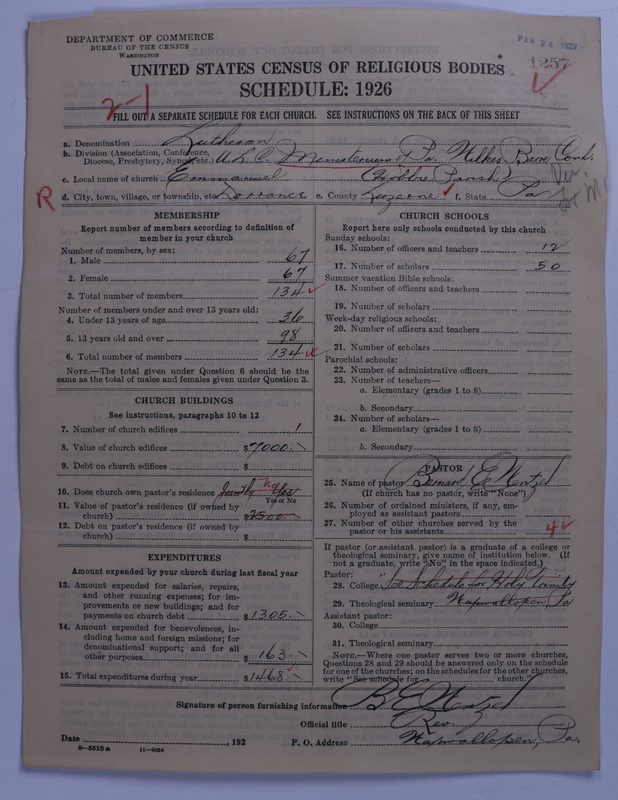 DEPARTMENT OF COMMERCE
BUREAU OF THE CENSUS
WASHINGTON
FEB 24 1927
1257
UNITED STATES CENSUS OF RELIGIOUS BODIES
SCHEDULE: 1926
2-1
FILL OUT A SEPARATE SCHEDULE FOR EACH CHURCH. SEE INSTRUCTIONS ON THE BACK OF THIS SHEET
a. Denomination Lutheran
b. Division (Association, Conference, Diocese, Presbytery, Synod, etc.) U.L.C. Ministerium of Pa. Wilkes Barre Conf.
c. Local name of church Emmanuel Parish
R
d. City, town, village, or township, etc. Dorrance e. County Luzerne f. State Pa
MEMBERSHIP
Report number of members according to definition of
member in your church
Number of members, by sex:
1. Male 67
2. Female 67
3. Total number of members 134
Number of members under and over 13 years old:
4. Under 13 years of age 36
5. 13 years old and over 98
6. Total number of members 134
NOTE.—The total given under Question 6 should be the
same as the total of males and females given under Question 3.
CHURCH BUILDINGS
See instructions, paragraphs 10 to 12
7. Number of church edifices 1
8. Value of church edifices $7000.
9. Debt on church edifices $
10. Does church own pastor's residence Jointly no Yes
Yes or No
11. Value of pastor's residence (if owned by
church) $2500.
12. Debt on pastor's residence (if owned by
church) $
EXPENDITURES
Amount expended by your church during last fiscal year
13. Amount expended for salaries, repairs,
and other running expenses; for im-
provements or new buildings; and for
payments on church debt $1305.
14. Amount expended for benevolences, in-
cluding home and foreign missions; for
denominational support; and for all
other purposes 163.
15. Total expenditures during year $1468.
CHURCH SCHOOLS
Report here only schools conducted by this church
Sunday schools:
16. Number of officers and teachers 12
17. Number of scholars 50
Summer vacation Bible schools:
18. Number of officers and teachers
19. Number of scholars
Week-day religious schools:
20. Number of officers and teachers
21. Number of scholars
Parochial schools:
22. Number of administrative officers
23. Number of teachers—
a. Elementary (grades 1 to 8)
b. Secondary
24. Number of scholars—
a. Elementary (grades 1 to 8)
b. Secondary
PASTOR
25. Name of pastor
(If church has no pastor, write "None")
26. Number of ordained ministers, if any, em-
ployed as assistant pastors
27. Number of other churches served by the
pastor or his assistants 4
If pastor (or assistant pastor) is a graduate of a college or
theological seminary, give name of institution below. (If
not a graduate, write "No" in the space indicated.)
Pastor:
28. College "See Schedule for Holy Family
29. Theological seminary Wapwallopen, Pa
Assistant pastor:
30. College
31. Theological seminary
NOTE.—Where one pastor serves two or more churches,
Questions 28 and 29 should be answered only on the schedule
for one of the churches; on the schedules for the other churches,
write "See schedule for church."
Signature of person furnishing information
Official title Rev.
Date , 192 P. O. Address Wapwallopen, Pa.
8-5518 a 11-9064